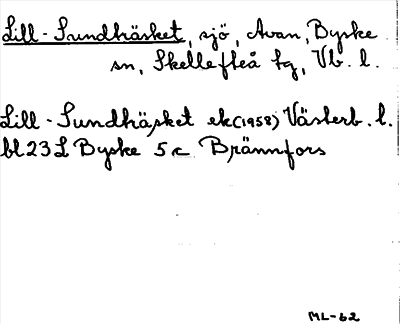 Lill-Sundträsket, sjö, Avan, Byske
sn, Skellefteå tg, Vb. l.
Lill-Sundträsket ek(1958) Västerb. l.
bl 23 L Byske 5 c Brännfors
ML-62